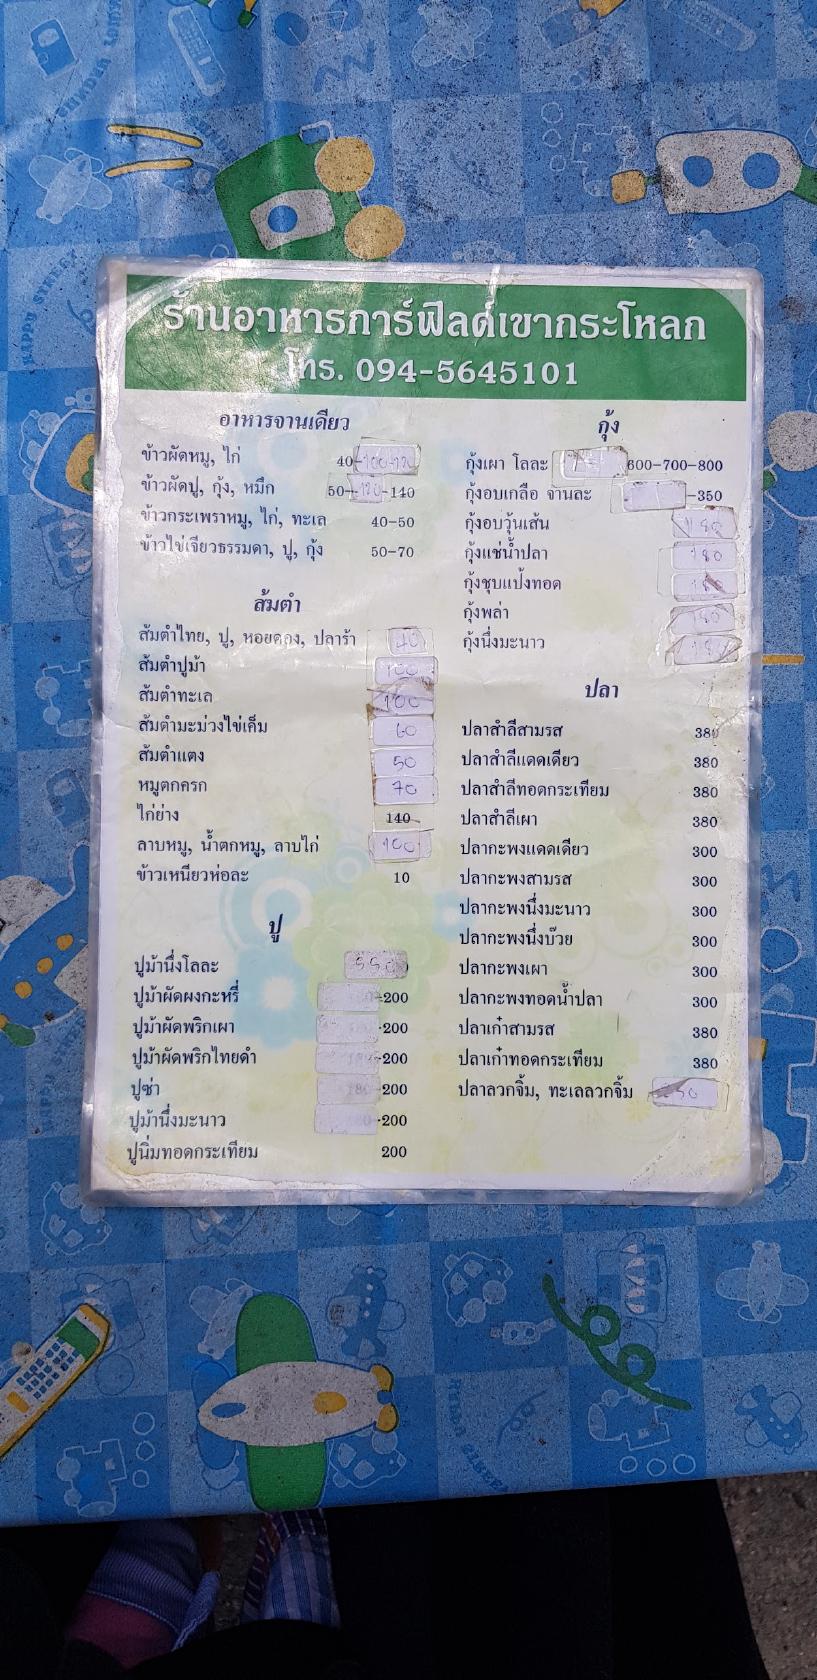 ร้านอาหารการ์ฟิลด์เขากระโหลก
โทร. 094-5645101
อาหารจานเดียว
ข้าวผัดหมู, ไก่ 40-100-120
ข้าวผัดปู, กุ้ง, หมึก 50-120-140
ข้าวกระเพราหมู, ไก่, ทะเล 40-50
ข้าวไข่เจียวธรรมดา, ปู, กุ้ง 50-70
ส้มตำ
ส้มตำไทย, ปู, หอยดอง, ปลาร้า 40
ส้มตำปูม้า 100
ส้มตำทะเล 100
ส้มตำมะม่วงไข่เค็ม 60
ส้มตำแตง 50
หมูตกครก 70
ไก่ย่าง 140
ลาบหมู, น้ำตกหมู, ลาบไก่ 100
ข้าวเหนียวห่อละ 10
ปู
ปูม้านึ่งโลละ 550
ปูม้าผัดผงกะหรี่ -200
ปูม้าผัดพริกเผา -200
ปูม้าผัดพริกไทยดำ 180-200
ปูซ่า 180-200
ปูม้านึ่งมะนาว -200
ปูนิ่มทอดกระเทียม 200
กุ้ง
กุ้งเผา โลละ 600-700-800
กุ้งอบเกลือ จานละ -350
กุ้งอบวุ้นเส้น 180
กุ้งแช่น้ำปลา 180
กุ้งชุบแป้งทอด 180
กุ้งพล่า 180
กุ้งนึ่งมะนาว 180
ปลา
ปลาสำลีสามรส 380
ปลาสำลีแดดเดียว 380
ปลาสำลีทอดกระเทียม 380
ปลาสำลีเผา 380
ปลากะพงแดดเดียว 300
ปลากะพงสามรส 300
ปลากะพงนึ่งมะนาว 300
ปลากะพงนึ่งบ๊วย 300
ปลากะพงเผา 300
ปลากะพงทอดน้ำปลา 300
ปลาเก๋าสามรส 380
ปลาเก๋าทอดกระเทียม 380
ปลาลวกจิ้ม, ทะเลลวกจิ้ม